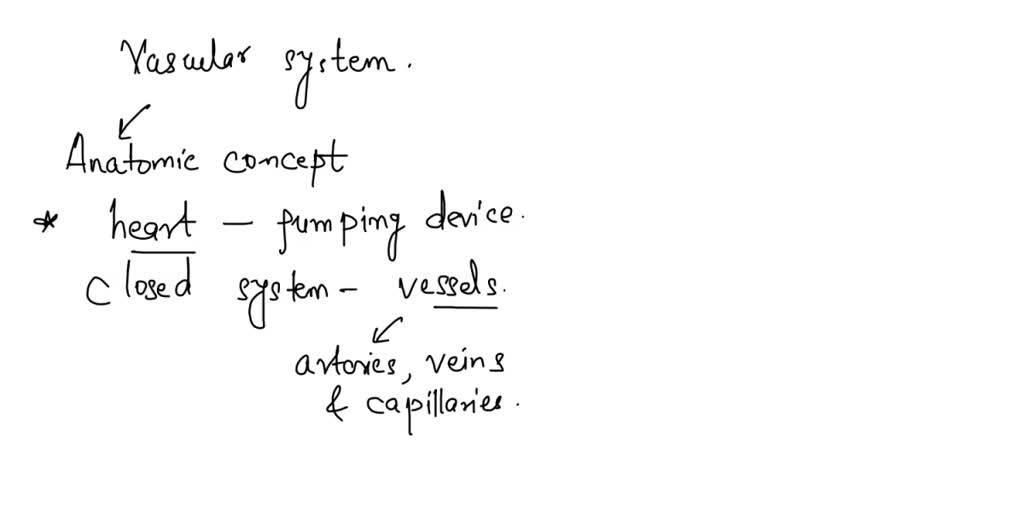 Vascular system.
Anatomic concept
* heart – pumping device.
closed system – vessels.
arteries, veins
& capillaries.